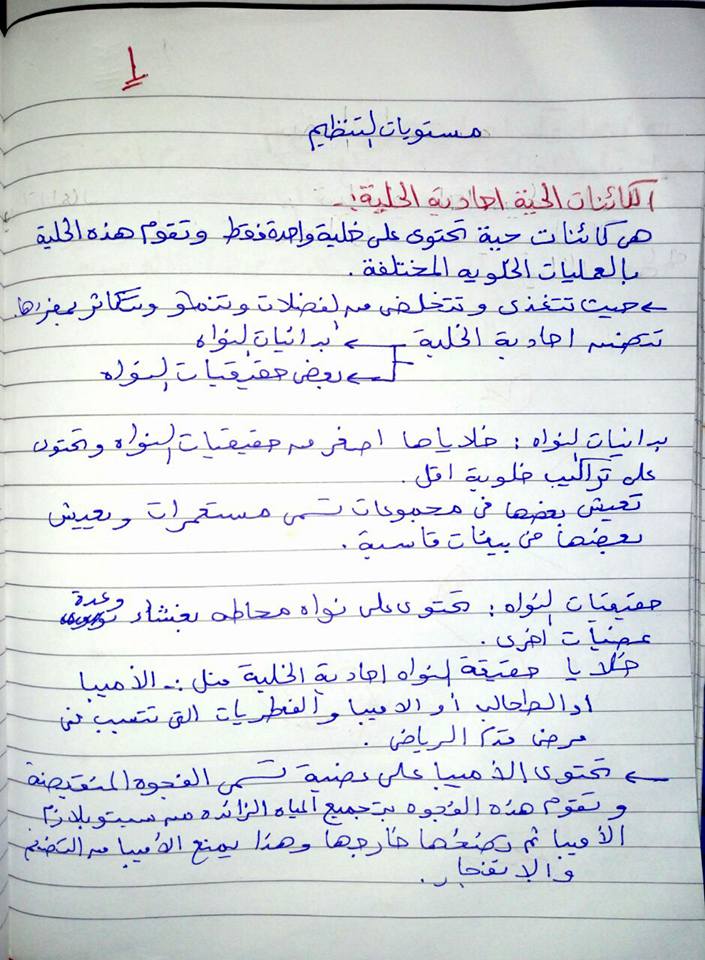 ١
مستويات التنظيم
الكائنات الحية احادية الخلية :ـ
هى كائنات حية تحتوى على خلية واحدة فقط وتقوم هذه الخلية
بالعمليات الخلويه المختلفة .
← حيث تتغذى وتتخلص من لفضلات وتنمو وتتكاثر بمفردها.
تتضمن احادية الخلية ← بدائيات النواه
← بعض حقيقيات النواه
بدائيات النواه : خلاياها اصغر من حقيقيات النواه وتحتوى
على تراكيب خلوية اقل .
تعيش بعضها فى مجموعات تسمى مستعمرات ويعيش
بعضها فى بيئات قاسية .
حقيقيات النواه : تحتوى على نواه محاطه بغشاء وعدة
عضيات أخرى .
خلايا حقيقة النواه احادية الخلية مثل :ـ الأميبا
او الطحالب أو الاميبا والفطريات التى تتسبب فى
مرض قدم الرياضى .
← تحتوى الأميبا على عضية تسمى الفجوه المنقبضة
وتقوم هذه الفجوه بتجميع المياه الزائده من سيتوبلازم
الأميبا ثم تضخها خارجها وهذا يمنع الأميبا من التضخم
والانفجار .